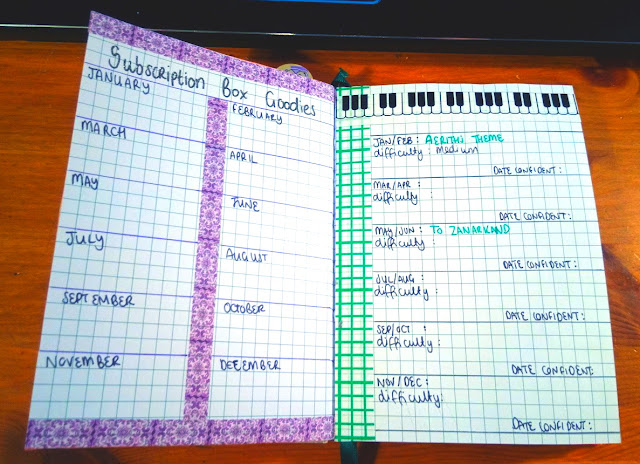 Subscription Box Goodies
JANUARY
FEBRUARY
MARCH
APRIL
MAY
JUNE
JULY
AUGUST
SEPTEMBER
OCTOBER
NOVEMBER
DECEMBER
JAN/FEB : AERITHS THEME
difficulty : Medium
DATE CONFIDENT :
MAR/APR :
difficulty :
DATE CONFIDENT :
MAY/JUN : TO ZANARKAND
difficulty :
DATE CONFIDENT :
JUL/AUG :
difficulty :
DATE CONFIDENT :
SEP/OCT :
difficulty :
DATE CONFIDENT:
NOV/DEC :
difficulty:
DATE CONFIDENT :